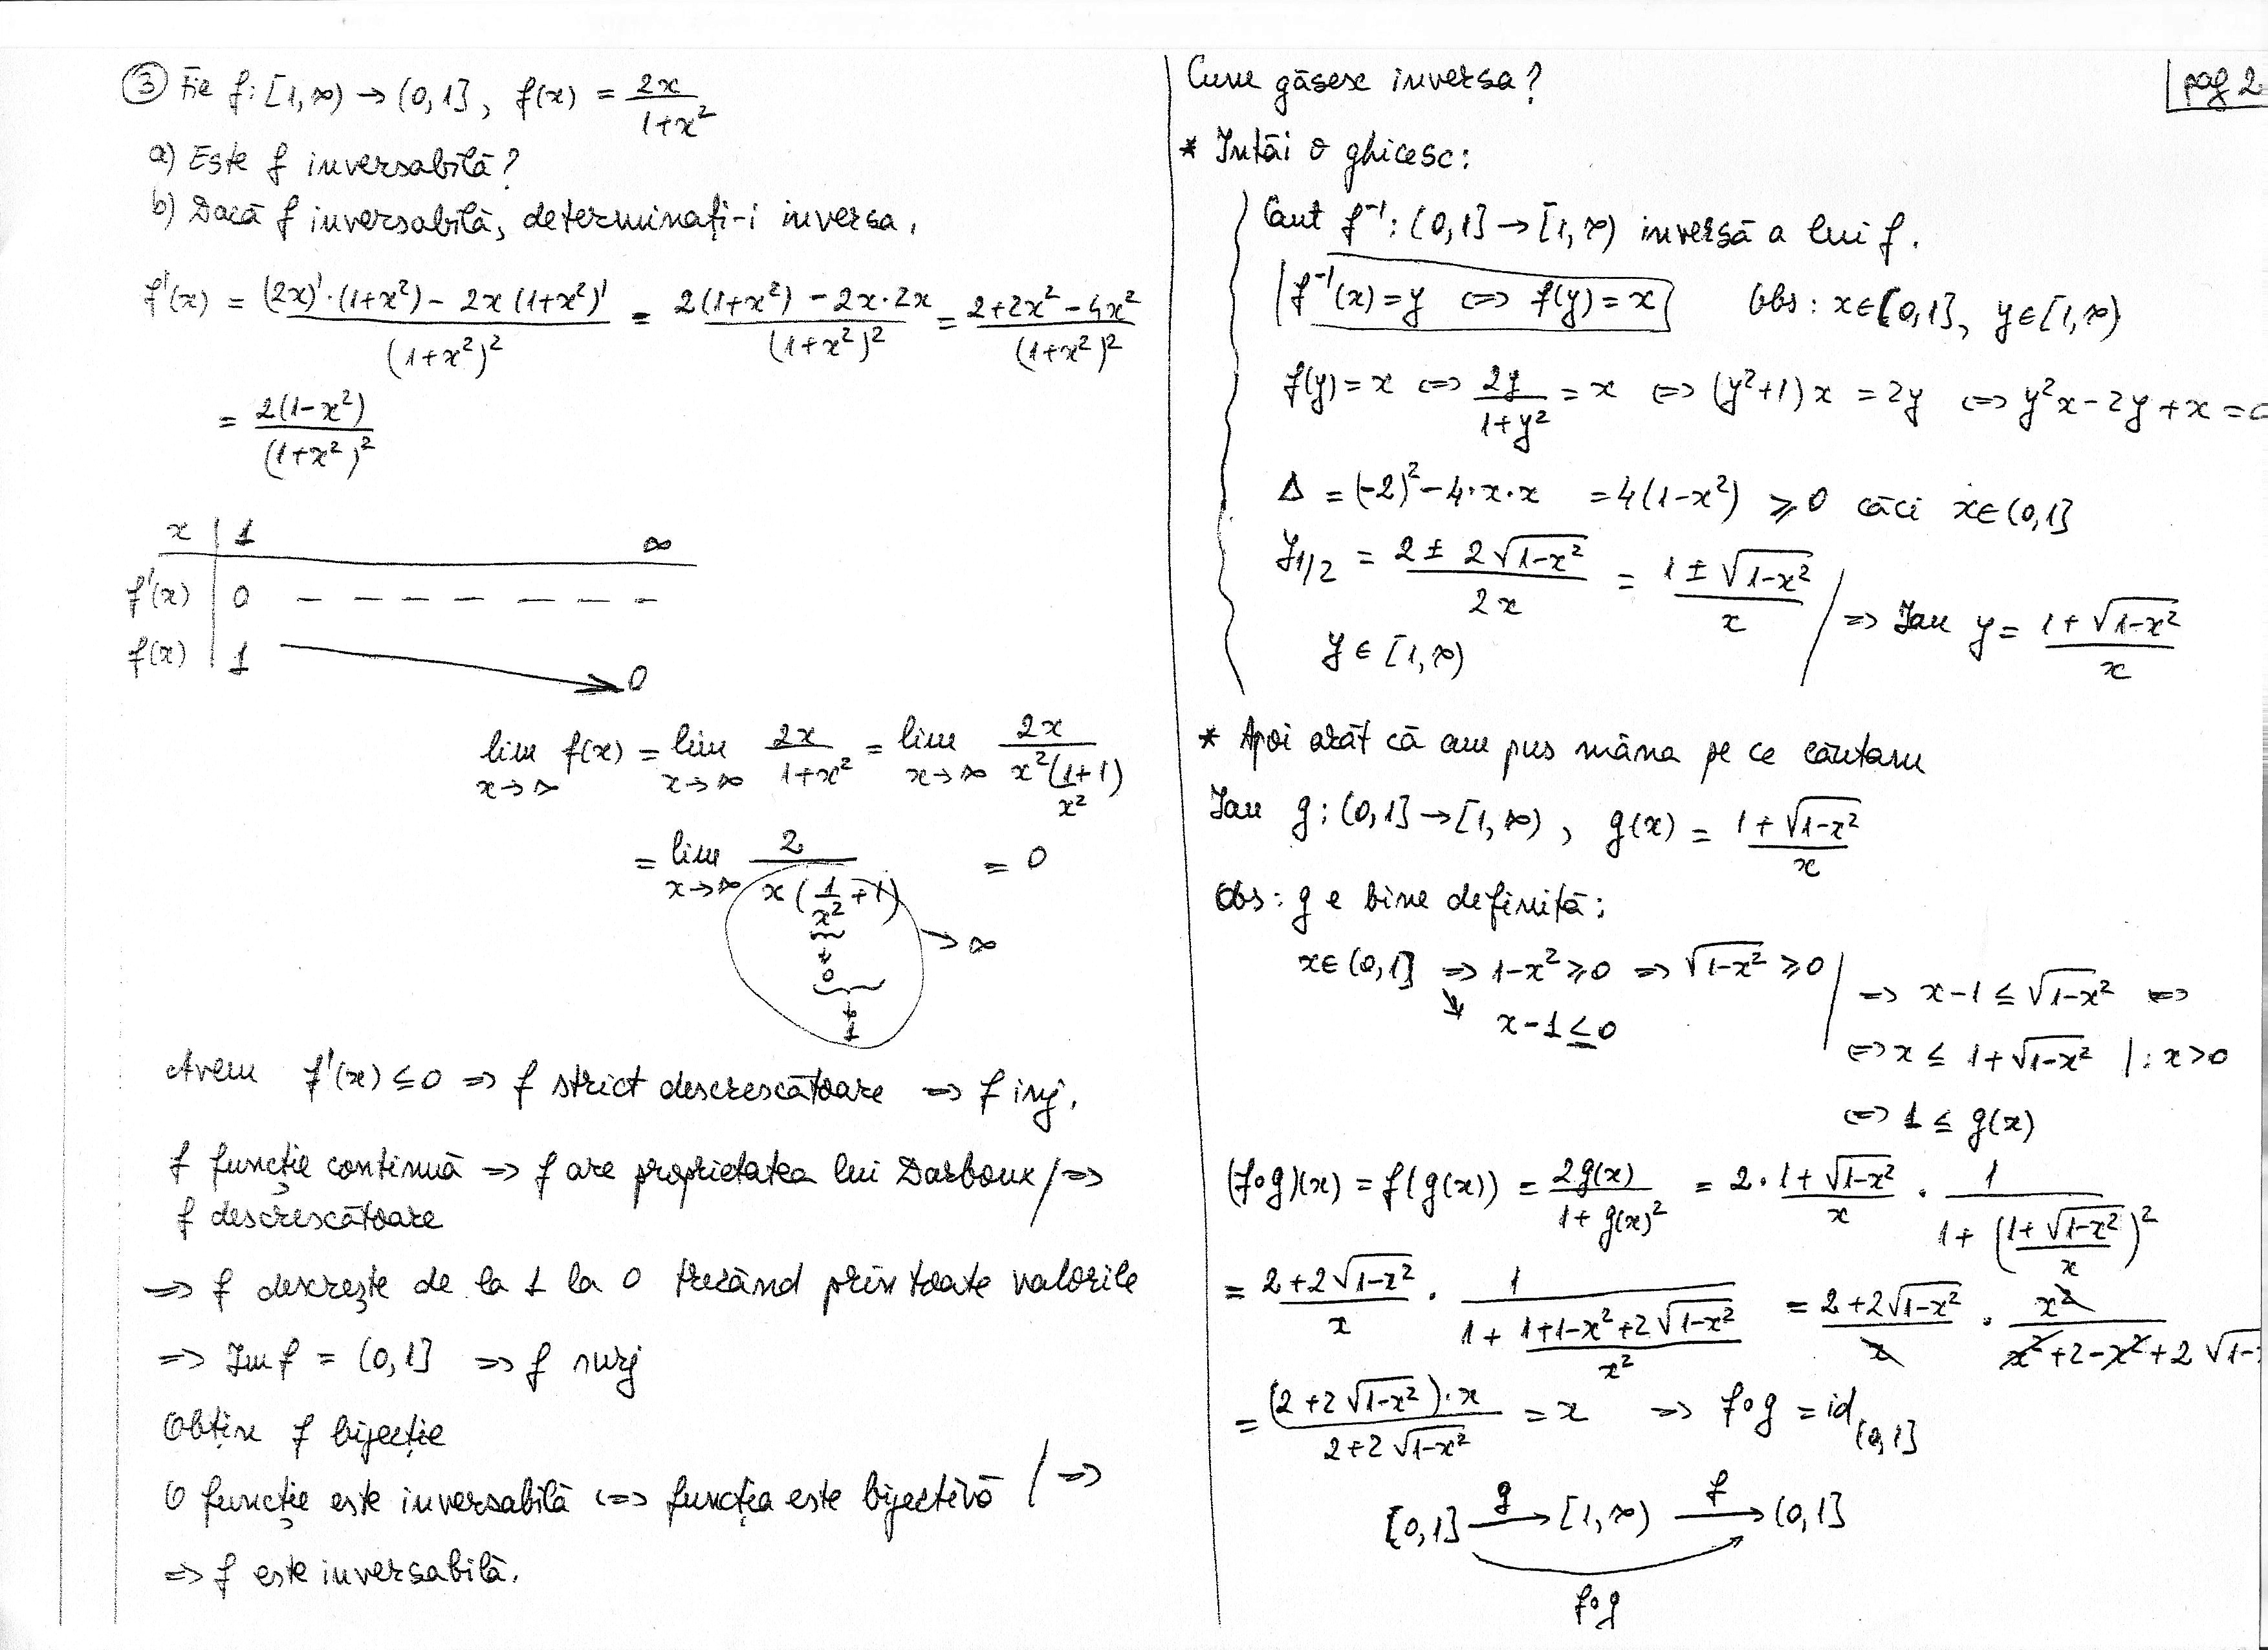 ③ Fie f: [1,∞) → (0,1], f(x) = 2x/(1+x²)
a) Este f inversabilă?
b) Dacă f inversabilă, determinați-i inversa.
f'(x) = ((2x)'·(1+x²) − 2x(1+x²)')/(1+x²)² = (2(1+x²) − 2x·2x)/(1+x²)² = (2+2x²−4x²)/(1+x²)²
= 2(1−x²)/(1+x²)²
x | 1 ∞
f'(x) | 0 − − − − − − −
f(x) | 1 → 0
lim x→∞ f(x) = lim x→∞ 2x/(1+x²) = lim x→∞ 2x/(x²(1/x²+1))
= lim x→∞ 2/(x(1/x²+1)) = 0
→ ∞
↓
0
↓
1
Avem f'(x) ≤ 0 ⇒ f strict descrescătoare ⇒ f inj.
f funcție continuă ⇒ f are proprietatea lui Darboux / ⇒
f descrescătoare
⇒ f descrește de la 1 la 0 trecând prin toate valorile
⇒ Im f = (0,1] ⇒ f surj
Obțin f bijecție
O funcție este inversabilă ⇔ funcția este bijectivă / ⇒
⇒ f este inversabilă.
Cum găsesc inversa?
pag 2
* Întâi o ghicesc:
Caut f⁻¹: (0,1] → [1,∞) inversă a lui f.
f⁻¹(x) = y ⇔ f(y) = x Obs: x∈(0,1], y∈[1,∞)
f(y) = x ⇔ 2y/(1+y²) = x ⇔ (y²+1)x = 2y ⇔ y²x − 2y + x = 0
Δ = (−2)² − 4·x·x = 4(1−x²) ≥ 0 căci x∈(0,1]
y1/2 = (2 ± 2√(1−x²))/(2x) = (1 ± √(1−x²))/x / ⇒ Iau y = (1+√(1−x²))/x
y ∈ [1,∞)
* Apoi arăt că am pus mâna pe ce căutam
Iau g: (0,1] → [1,∞), g(x) = (1+√(1−x²))/x
Obs: g e bine definită:
x∈(0,1] ⇒ 1−x² ≥ 0 ⇒ √(1−x²) ≥ 0 / ⇒ x−1 ≤ √(1−x²) ⇔
⇘ x−1 ≤ 0
⇔ x ≤ 1+√(1−x²) |: x>0
⇔ 1 ≤ g(x)
(f∘g)(x) = f(g(x)) = 2g(x)/(1+g(x)²) = 2·(1+√(1−x²))/x · 1/(1+((1+√(1−x²))/x)²)
= (2+2√(1−x²))/x · 1/(1+(1+1−x²+2√(1−x²))/x²) = (2+2√(1−x²))/x · x²/(x²+2−x²+2√1-
= ((2+2√(1−x²))·x)/(2+2√(1−x²)) = x ⇒ f∘g = id(0,1]
[0,1] →g [1,∞) →f (0,1]
f∘g